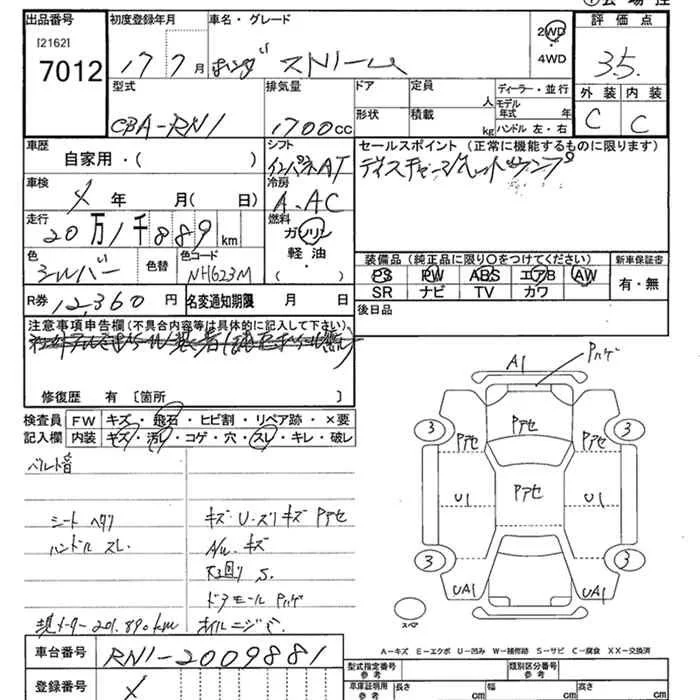 出品番号
[2162]
7012
初度登録年月
17 7月
車名・グレード
ホンダ ストリーム
2WD
4WD
評価点
3.5
外装 内装
C C
型式
CBA-RN1
排気量
1700cc
ドア
形状
定員
人
積載
kg
ディーラー・並行
モデル年式 年
ハンドル 左・右
車歴
自家用・( )
シフト
インパネAT
セールスポイント(正常に機能するものに限ります)
車検
年 月( 日)
冷房
A.AC
走行
20万1千889km
燃料
ガソリン
軽油
( )
色
シルバー
色替
色コード
NH623M
装備品(純正品に限り○をつけてください)
PS PW ABS エアB AW
SR ナビ TV カワ
新車保証書
有・無
R券
12,360円
名変通知期限 月 日
後日品
注意事項申告欄(不具合内容等は具体的に記入して下さい)
修復歴 有〔箇所 〕
検査員記入欄
FW キズ・飛石・ヒビ割・リペア跡・×要
内装 キズ・汚レ・コゲ・穴・スレ・キレ・破レ
ベルト音
シート ヘタリ
ハンドル スレ
現メーター 201.890km
キズ・U・スリキズ Pアセ
A/W キズ
ドアモール Pハゲ
A1 Pハゲ
3 Pアセ Pアセ Pアセ 3
U1 Pアセ U1
3 3
UA1 UA1
スペア
A-キズ E-エクボ U-凹み W-補修跡 S-サビ C-腐食 XX-交換済
車台番号
RN1-2009881
登録番号
型式指定番号 参考
類別区分番号 参考
車庫証明用 参考
長さ cm
幅 cm
高さ cm